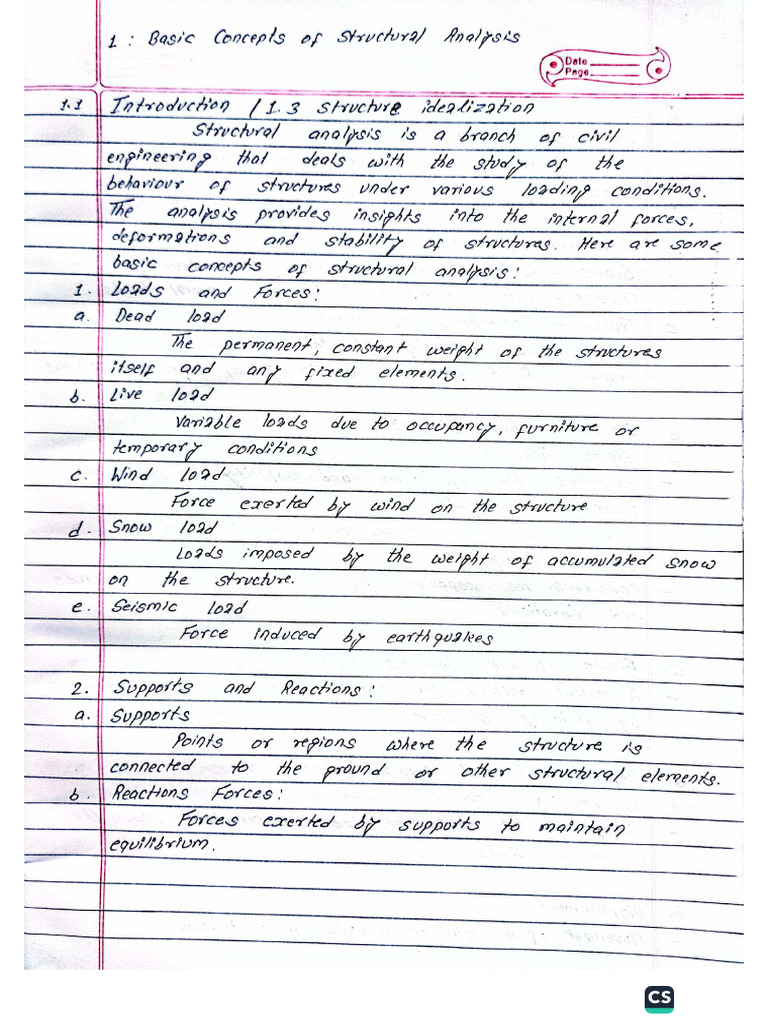 1 : Basic Concepts of Structural Analysis
Date
Page
1.1 Introduction / 1.3 structure idealization
Structural analysis is a branch of civil
engineering that deals with the study of the
behaviour of structures under various loading conditions.
The analysis provides insights into the internal forces,
deformations and stability of structures. Here are some
basic concepts of structural analysis:
1. Loads and Forces:
a. Dead load
The permanent, constant weight of the structures
itself and any fixed elements.
b. Live load
Variable loads due to occupancy, furniture or
temporary conditions
c. Wind load
Force exerted by wind on the structure
d. Snow load
Loads imposed by the weight of accumulated snow
on the structure.
e. Seismic load
Force induced by earthquakes
2. Supports and Reactions:
a. Supports
Points or regions where the structure is
connected to the ground or other structural elements.
b. Reactions Forces:
Forces exerted by supports to maintain
equilibrium.
CS